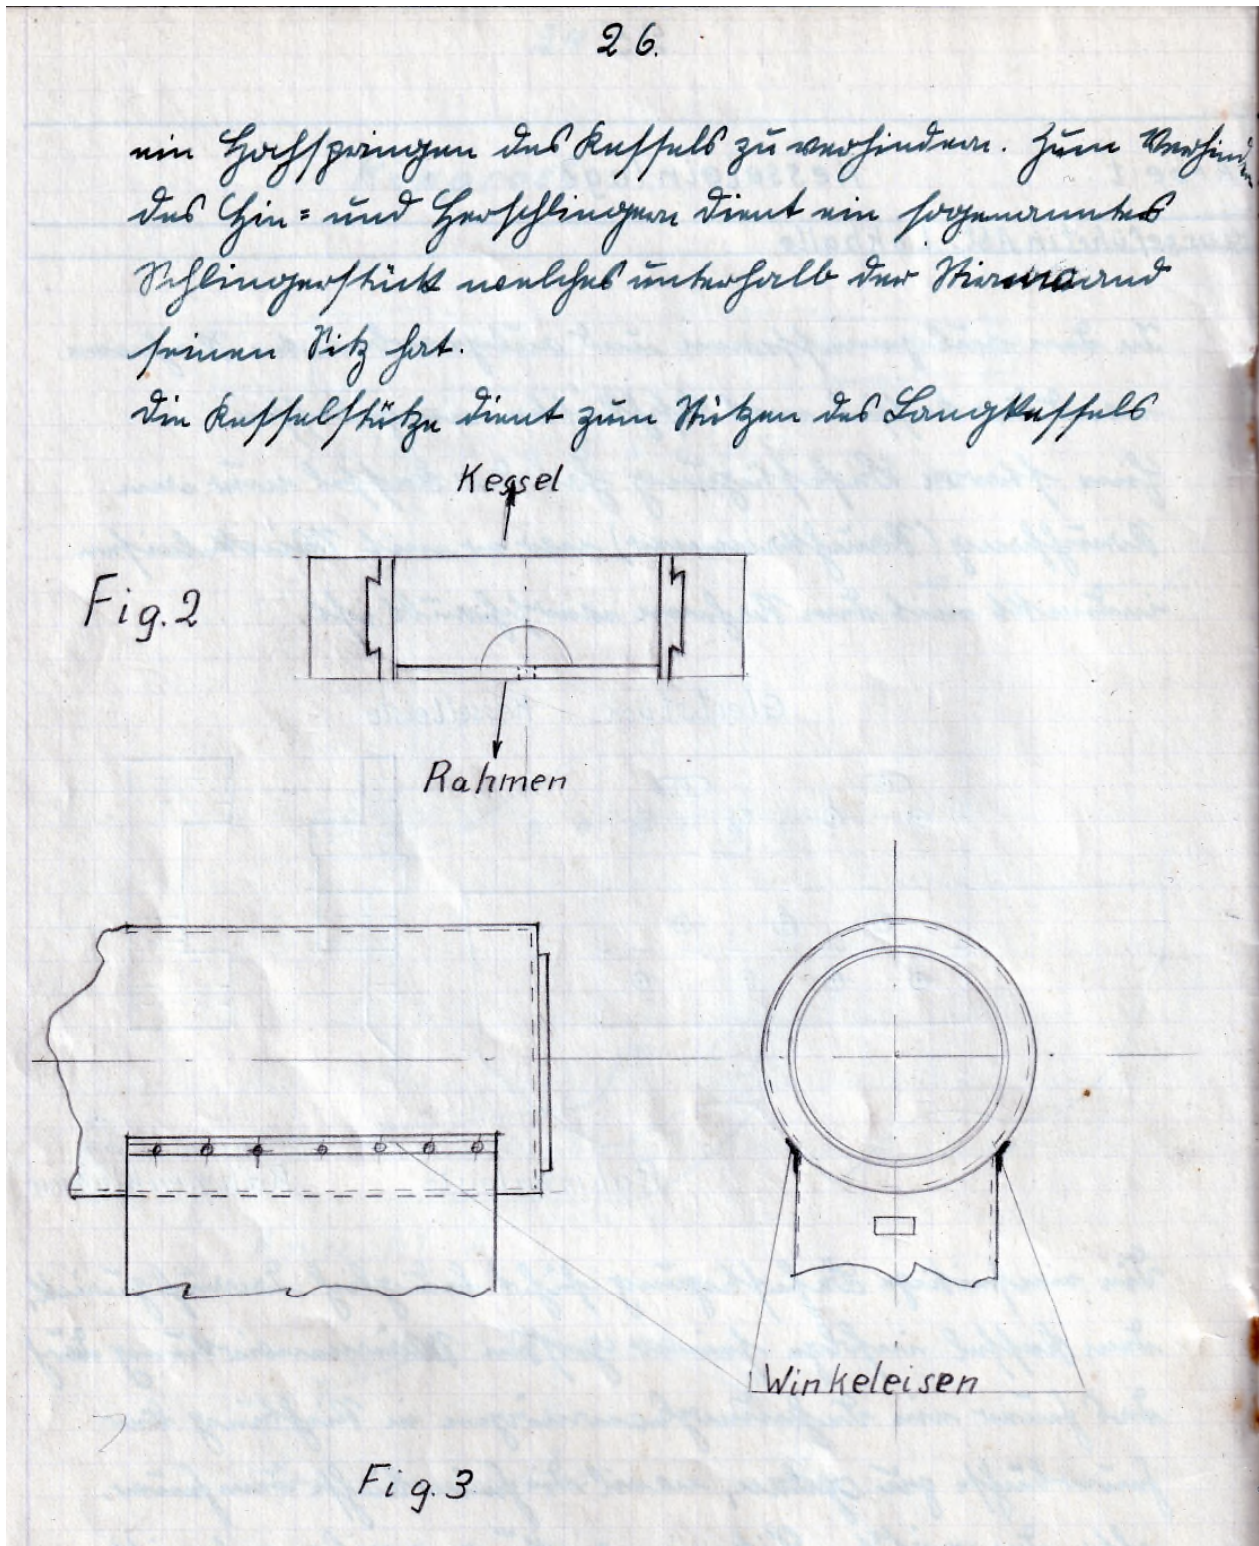 26.
ein Hochspringen des Kessels zu verhindern. Zum Verhindern
des Hin= und Herschlingern dient ein sogenanntes
Schlingerstück welches unterhalb der Stirnwand
seinen Sitz hat.
Die Kesselstütze dient zum Stützen des Langkessels
Kessel
Fig. 2
Rahmen
Winkeleisen
Fig. 3